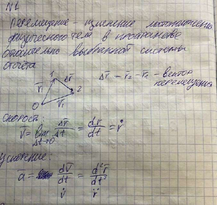 N1
Перемещение – изменение положения
физического тела в пространстве
относительно выбранной системы
отсчёта
Δr̄ = r̄₂ − r̄₁ – вектор
перемещения
1 Δr̄
r̄₁ 2
O r̄₂
скорость
v̄ = lim Δr̄/Δt = dr̄/dt = ṙ̄
Δt→0
ускорение:
ā = dv̄/dt = d²r̄/dt²